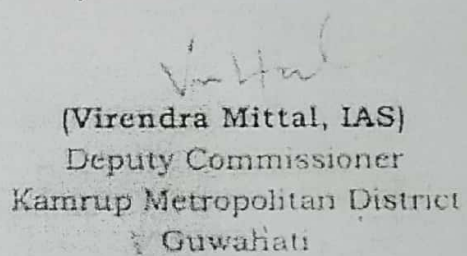 (Virendra Mittal, IAS)
Deputy Commissioner
Kamrup Metropolitan District
Guwahati